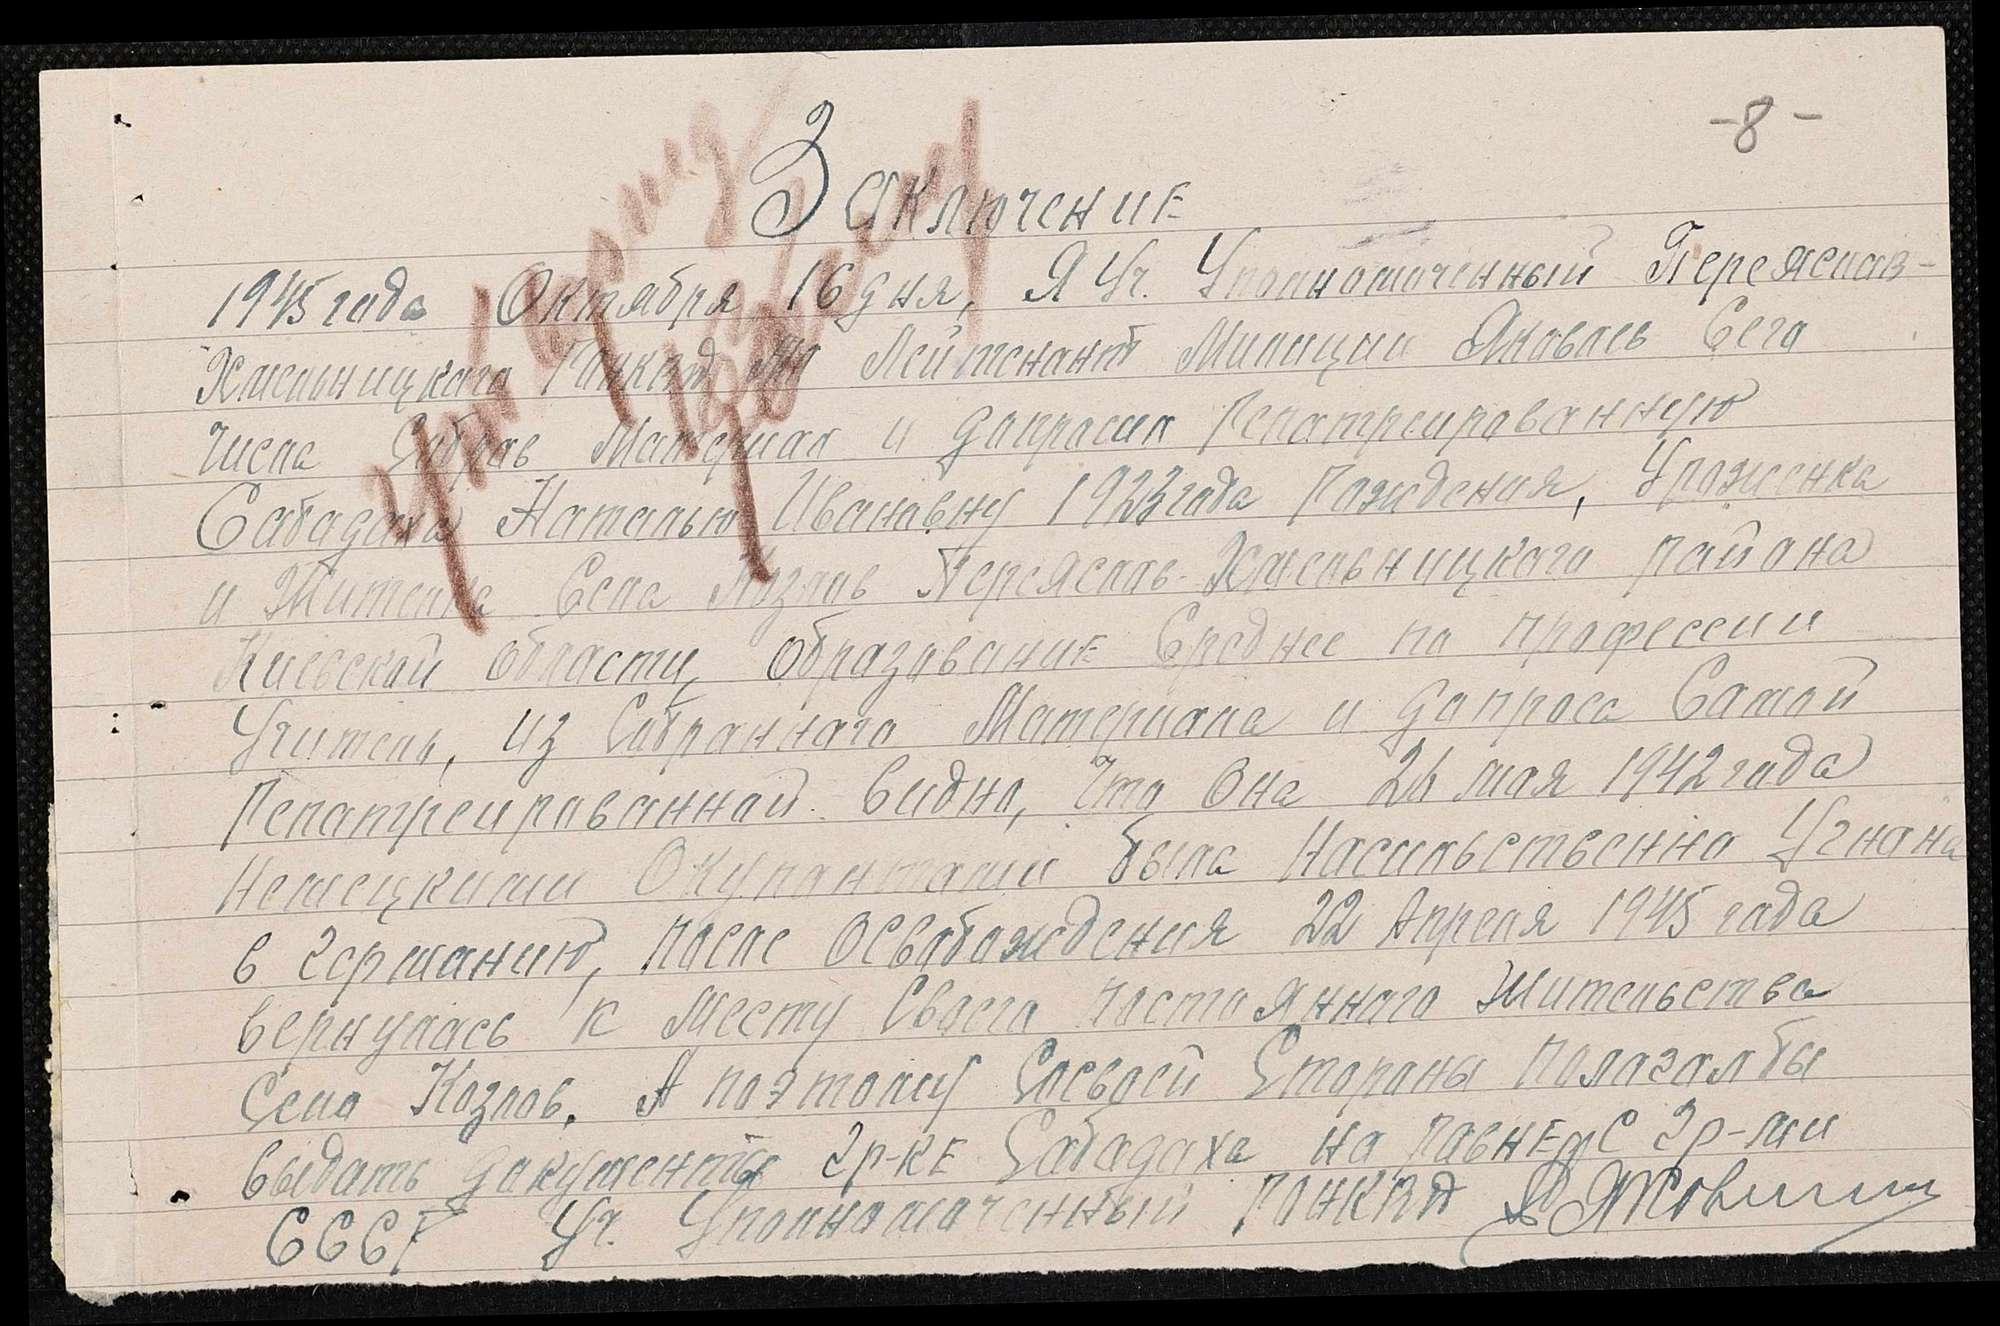 -8-
Заключение
1945 года Октября 16 дня, Я Уч. Уполномоченный Переяслав-
Хмельницкого РОНКВД Мл Лейтенант Милиции Яковлев Сего
Числа Собрав Материал и допросил Репатреированную
Сабадаха Наталью Ивановну 1923 года Рождения, Уроженка
и Жителка Села Козлов Переяслав-Хмельницкого района
Киевской области, образование Среднее по профессии
Учитель, из Собранного Материала и допроса Самой
Репатреированной видно, что Она 26 мая 1942 года
Немецкими Окупантами была Насильственно Угнана
в германию, после освобождения 22 Апреля 1945 года
вернулась к месту Своего постоянного Жительства
Село Козлов. А поэтому Сосвоей Стороны полагалбы
выдать документы гр-ке Сабадаха на равне с гр-ми
СССР Уч. Уполномоченный РОНКВД